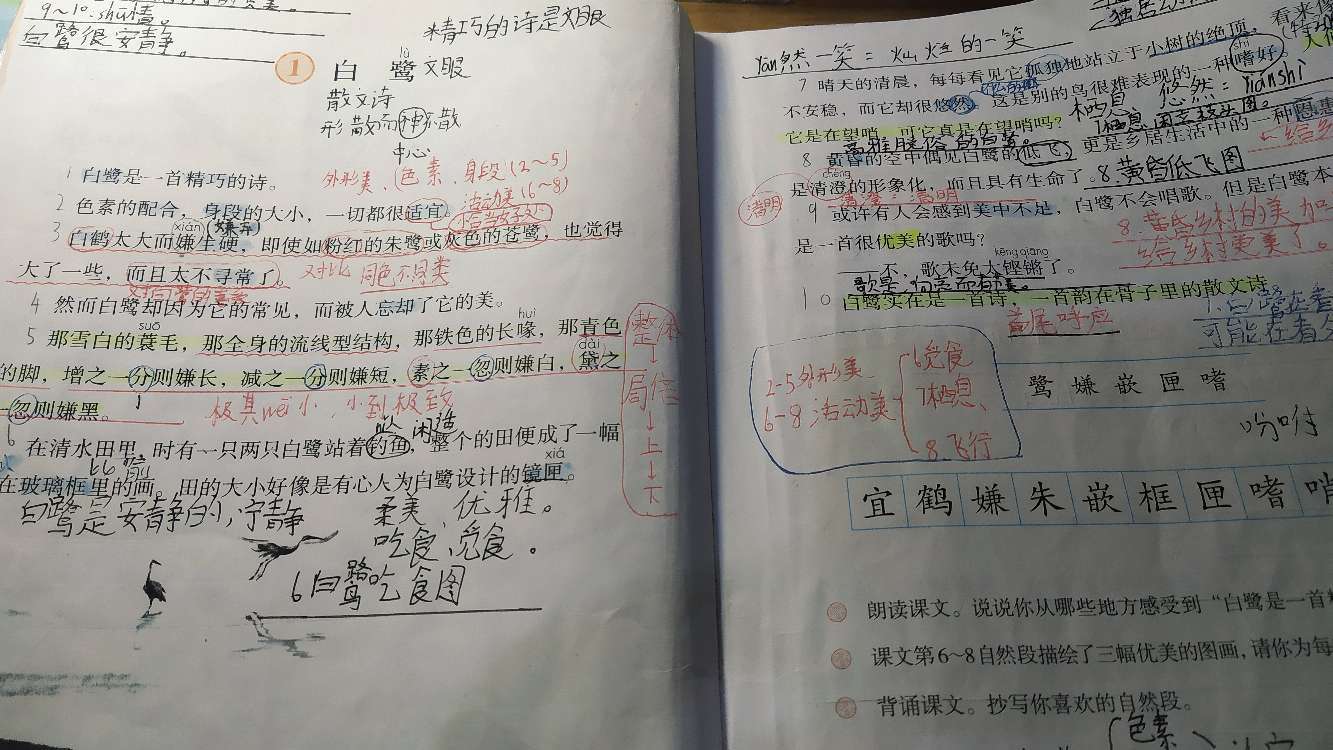 9~10.shū情。
白鹭很安静。
精巧的诗是文眼
lù
1 白鹭 文眼
散文诗
形散而神不散
中心
1 白鹭是一首精巧的诗。 外形美、色素、身段(2~5)
2 色素的配合，身段的大小，一切都很适宜。 活动美(6~8)
xián
3 白鹤太大而嫌生硬，即使如粉红的朱鹭或灰色的苍鹭，也觉得
大了一些，而且太不寻常了。 对比 同色不同类
4 然而白鹭却因为它的常见，而被人忘却了它的美。
suō huì
5 那雪白的蓑毛，那全身的流线型结构，那铁色的长喙，那青色
dài
的脚，增之一分则嫌长，减之一分则嫌短，素之一忽则嫌白，黛之
一忽则嫌黑。 极其wēi小，小到极致
整体
局部
上
下
6 在清水田里，时有一只两只白鹭站着钓鱼，整个的田便成了一幅
xiá
嵌在玻璃框里的画。田的大小好像是有心人为白鹭设计的镜匣。
白鹭是安静的，宁静 柔美、优雅。
吃食、觅食。
6白鹭吃食图
独居
yān然一笑=灿烂的一笑
7 晴天的清晨，每每看见它孤独地站立于小树的绝顶，看来像
shì
不安稳，而它却很悠然。这是别的鸟很难表现的一种嗜好。人们
栖息 悠然：
它是在望哨，可它真是在望哨吗？
高雅脱俗的白鹭。
8 黄昏的空中偶见白鹭的低飞，更是乡居生活中的一种恩惠
chéng
是清澄的形象化，而且具有生命了。 8黄昏低飞图
清明 清澄：清明
9 或许有人会感到美中不足，白鹭不会唱歌。但是白鹭本
是一首很优美的歌吗？ 8.黄昏乡村的美
给乡村更美了。
kēngqiāng
——不，歌未免太铿锵了。
10 白鹭实在是一首诗，一首韵在骨子里的散文诗
首尾呼应
1.白鹭在看
可能在看
2-5外形美
6-8活动美
6觅食
7栖息、
8飞行
鹭嫌嵌匣嗜
吩咐
宜鹤嫌朱嵌框匣嗜哨
朗读课文。说说你从哪些地方感受到“白鹭是一首精
课文第6~8自然段描绘了三幅优美的图画，请你为每
背诵课文。抄写你喜欢的自然段。
色素